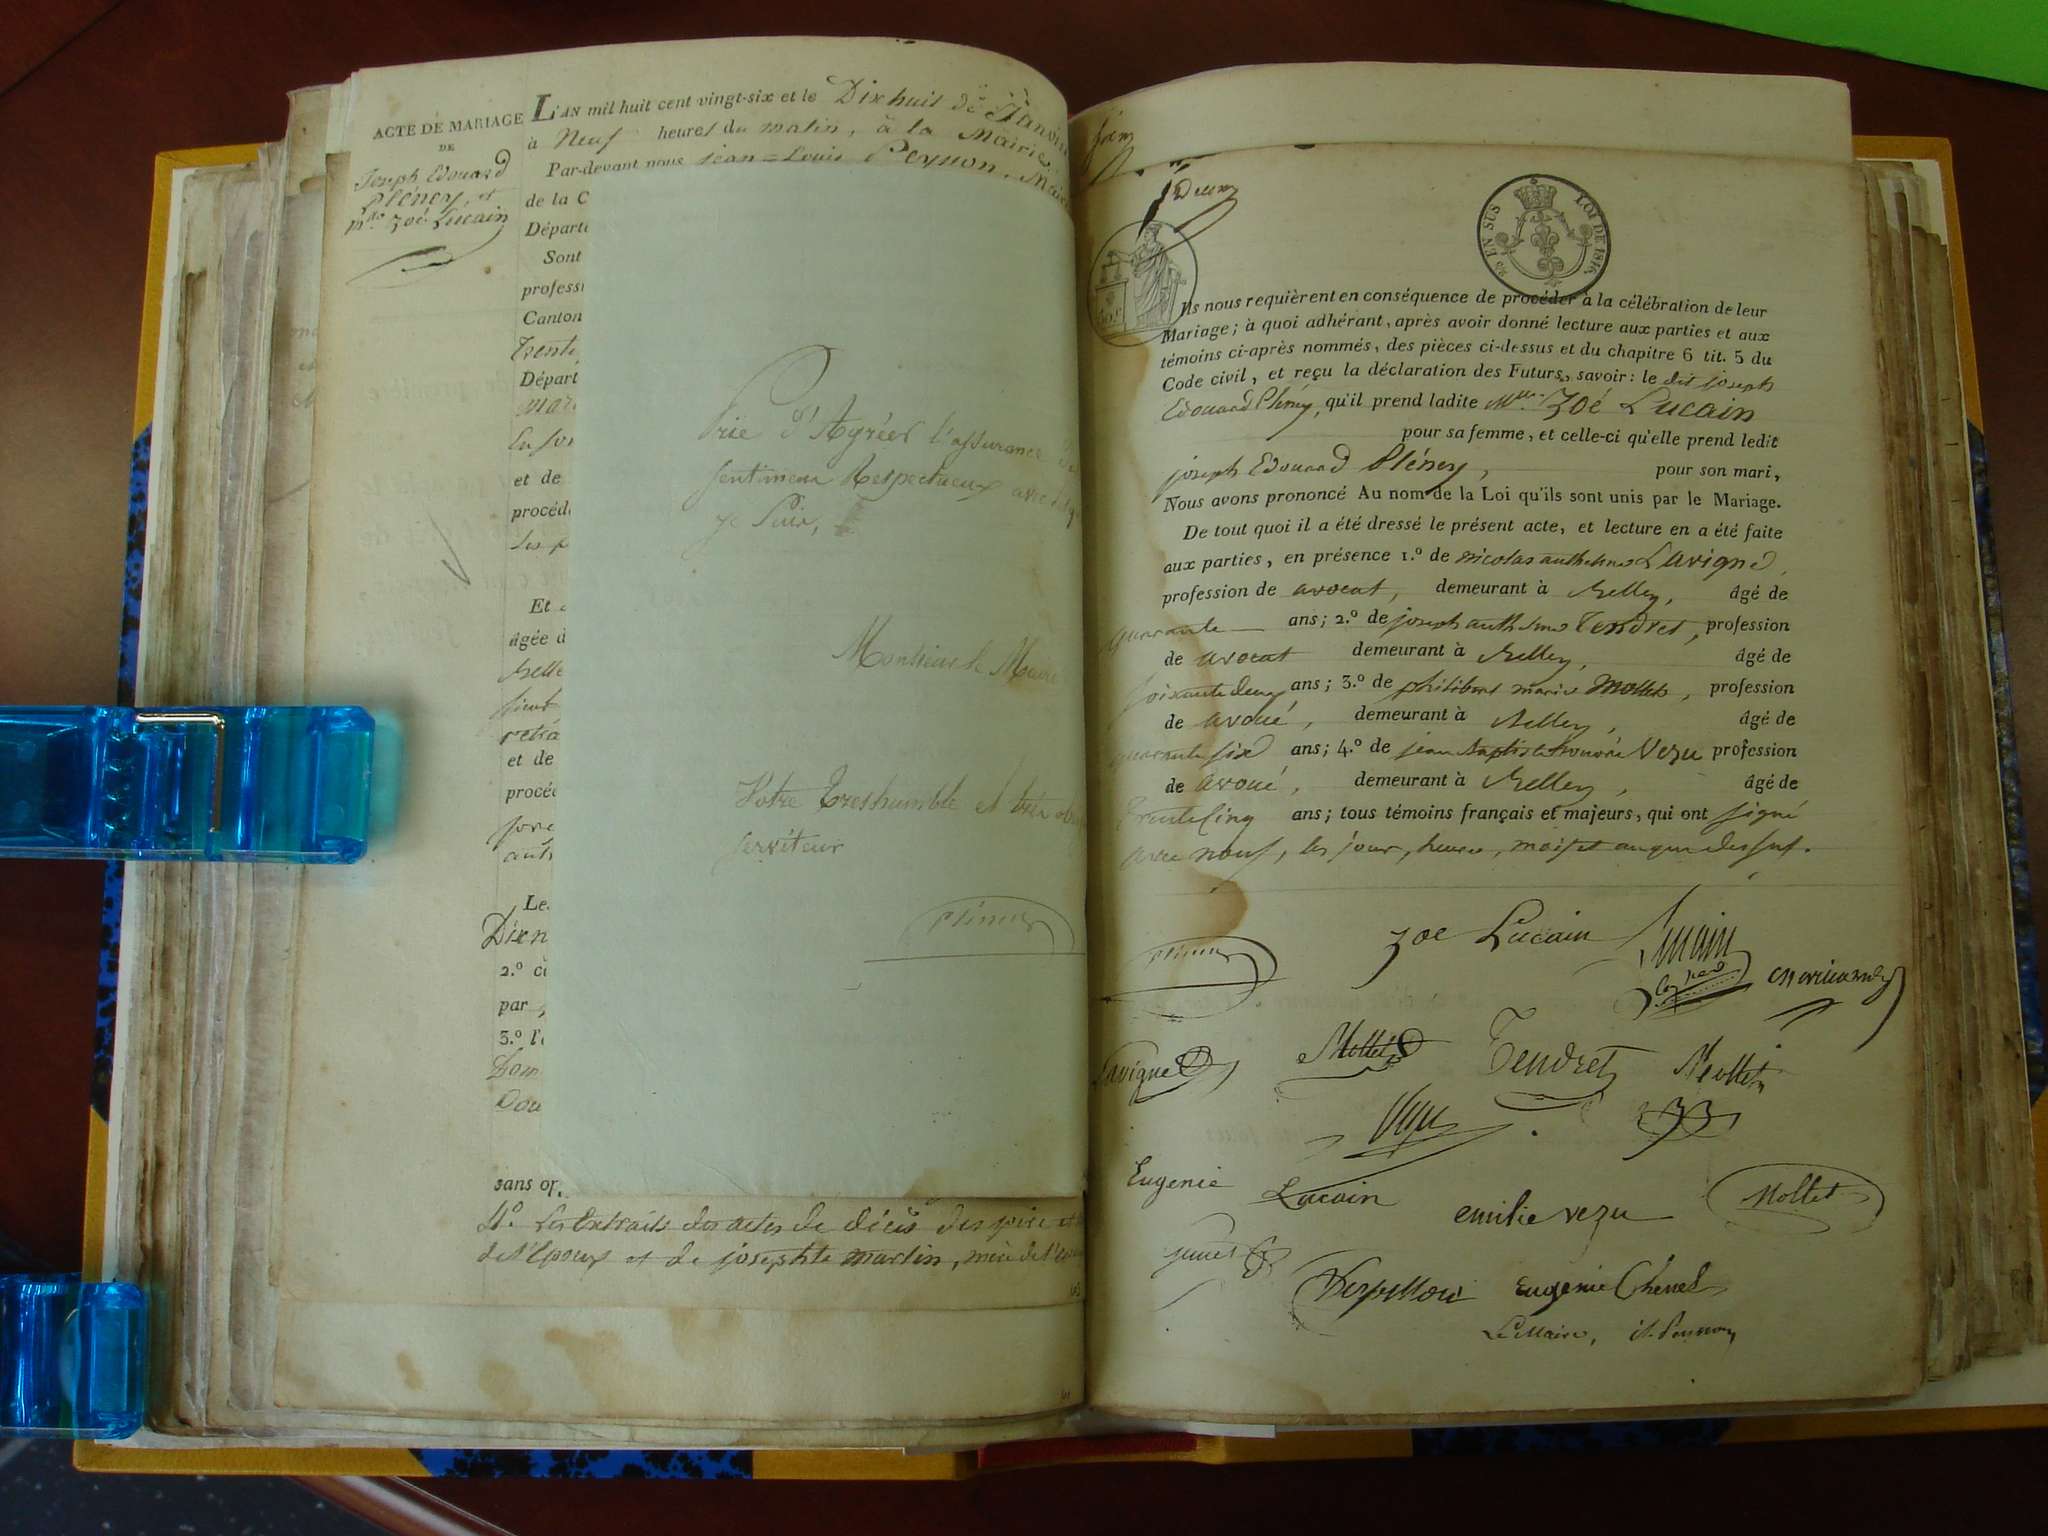 ACTE DE MARIAGE
DE
Joseph Edouard
Pléney, et
Mlle Zoé Lucain
L'AN mil huit cent vingt-six et le Dix huit de Janvier
à Neuf heures du matin, à la Mairie
Par-devant nous jean-Louis Peysson, Maire
de la C
Départe
Sont
professi
Canton
Trente
Départ
mar
et de
procéd
Les p
Et
âgée d
Belle
et de
procé
Le
Dix n
2.º
par
3.º l'
sans op
4º Les Extraits des actes de décès des père et
de l'Epoux et de josephte martin, mère de l'
prie d'Agréer l'assurance
sentimens Respectueux avec
je suis,
Monsieur le Maire
Votre Tres humble et très
serviteur
Ils nous requièrent en conséquence de procéder à la célébration de leur
Mariage; à quoi adhérant, après avoir donné lecture aux parties et aux
témoins ci-après nommés, des pièces ci-dessus et du chapitre 6 tit. 5 du
Code civil, et reçu la déclaration des Futurs, savoir: le dit joseph
Edouard Plénéy, qu'il prend ladite Mlle Zoé Lucain
pour sa femme, et celle-ci qu'elle prend ledit
joseph Edouard Plénéy, pour son mari,
Nous avons prononcé Au nom de la Loi qu'ils sont unis par le Mariage.
De tout quoi il a été dressé le présent acte, et lecture en a été faite
aux parties, en présence 1.º de nicolas anthelme Lavigne,
profession de avocat, demeurant à Belley, âgé de
quarante ans; 2.º de joseph anthelme Tendret, profession
de avocat demeurant à Belley, âgé de
soixante deux ans; 3.º de philibert marie Mollet, profession
de avoué, demeurant à Belley, âgé de
quarante six ans; 4.º de jean Baptiste honoré Vezu profession
de avoué, demeurant à Belley, âgé de
Trente Cinq ans; tous témoins français et majeurs, qui ont signé
avec nous, les jour, heure, mois et an que dessus.
zoe Lucain Lucain
Lavigne Mollet Tendret Mollet
Vezu
Eugenie Lucain emilie vezu Mollet
Eugenie Chenel
Le Maire,
EN SUS
LOI DE 1816